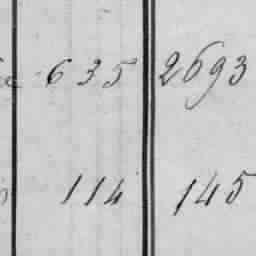 635 2693
114 145